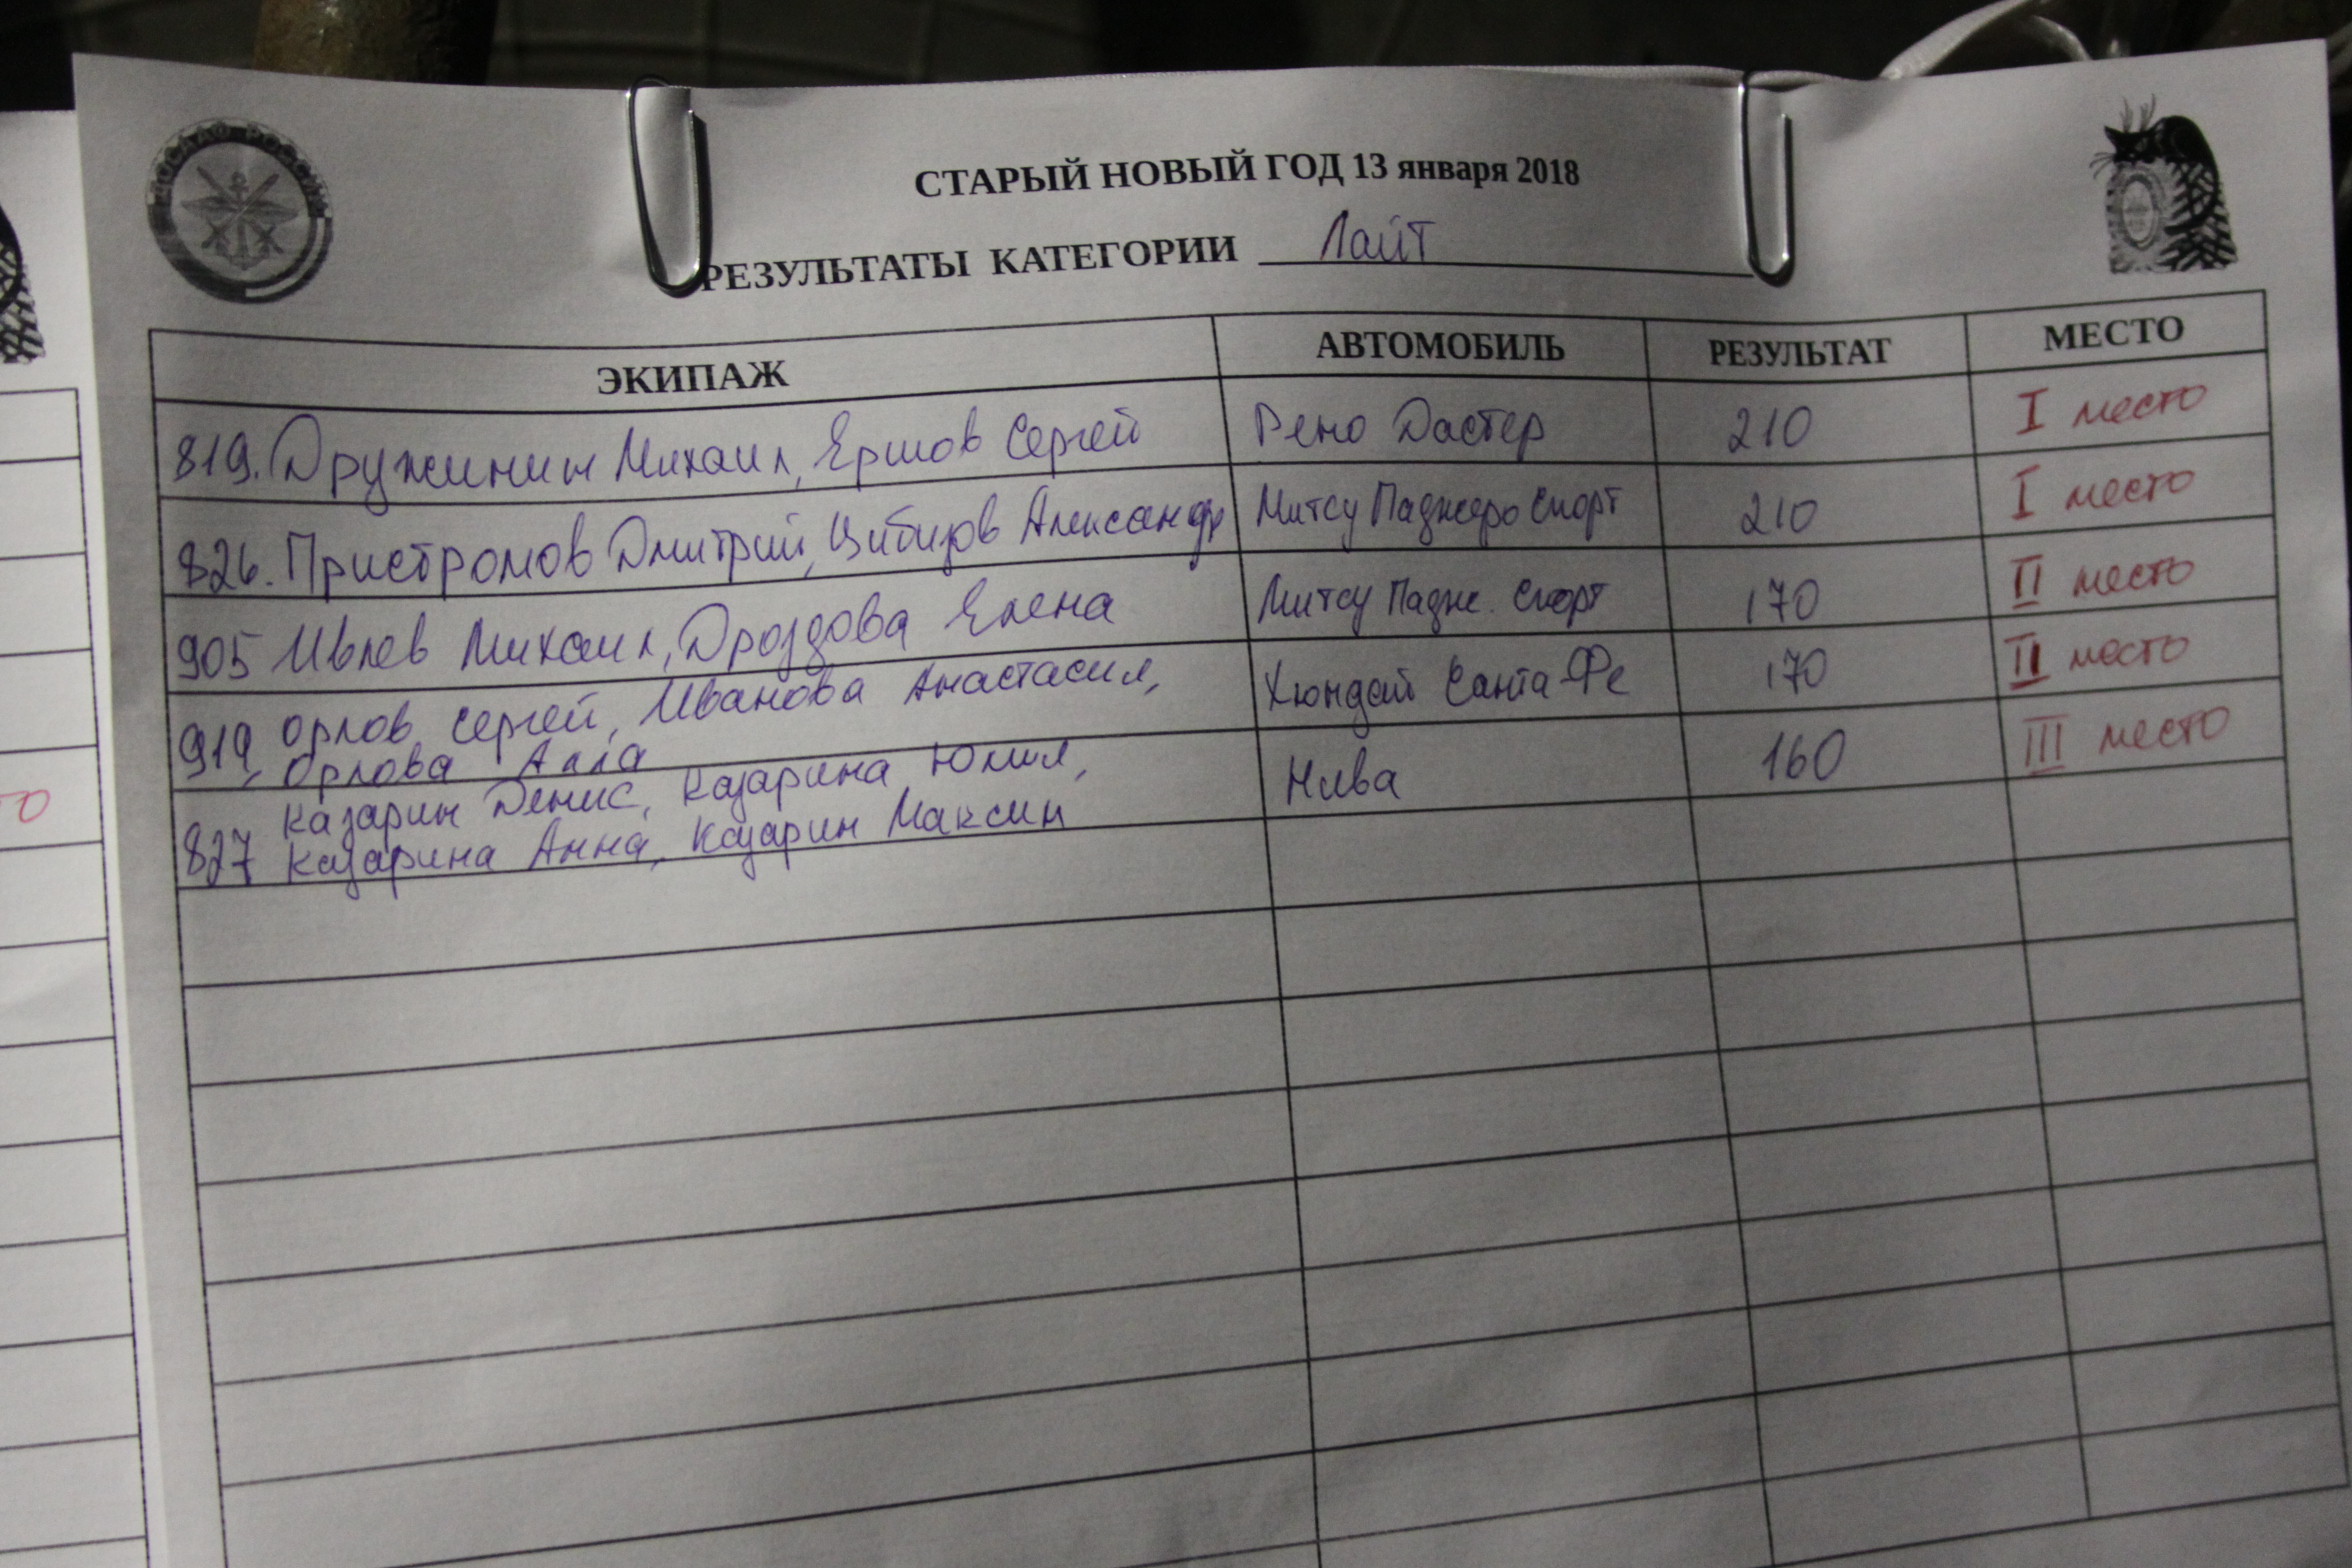 ДОСААФ РОССИИ
СТАРЫЙ НОВЫЙ ГОД 13 января 2018
РЕЗУЛЬТАТЫ КАТЕГОРИИ Лайт
ЭКИПАЖ АВТОМОБИЛЬ РЕЗУЛЬТАТ МЕСТО
819. Дружинин Михаил, Ершов Сергей Рено Дастер 210 I место
826. Пристромов Дмитрий, Цибизов Александр Митсу Паджеро Спорт 210 I место
905 Ивлев Михаил, Дроздова Елена Митсу Падж. Спорт 170 II место
919, Орлов Сергей, Иванова Анастасия, Хюндай Санта-Фе 170 II место
Орлова Алла
827 Казарин Денис, Казарина Юлия, Нива 160 III место
Казарина Анна, Казарин Максим